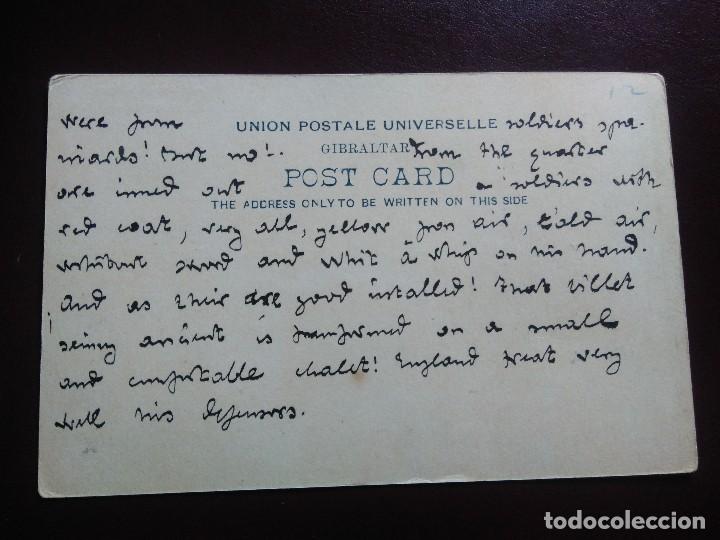 12
were from UNION POSTALE UNIVERSELLE soldiers spa-
niards! But no!. GIBRALTAR from the quarter
are inned out POST CARD a soldiers with
THE ADDRESS ONLY TO BE WRITTEN ON THIS SIDE
red coat, very all, yellow from air, bald air,
sword and whit a whip on his hand.
And as their are good installed! That billet
being ancient is on a small
and comfortable chalet! England treat very
well his defensors.
todocoleccion.net